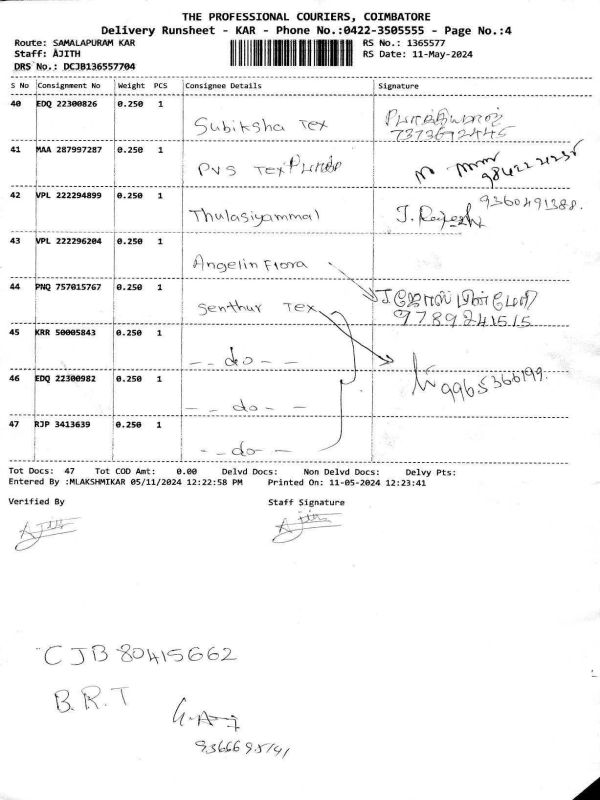 THE PROFESSIONAL COURIERS, COIMBATORE
Delivery Runsheet - KAR - Phone No.:0422-3505555 - Page No.:4
Route: SAMALAPURAM KAR RS No.: 1365577
Staff: AJITH RS Date: 11-May-2024
DRS No.: DCJB136557704
S No Consignment No Weight PCS Consignee Details Signature
40 EDQ 22300826 0.250 1
Subiksha Tex
7373672445
41 MAA 287997287 0.250 1
PVS Tex
9842221238
42 VPL 222294899 0.250 1
Thulasiyammal J. Rajesh 9360491388.
43 VPL 222296204 0.250 1
Angelin Flora
44 PNQ 757015767 0.250 1
Senthur Tex 9789241515
45 KRR 50005843 0.250 1
-- do --
46 EDQ 22300982 0.250 1 9965366199.
-- do --
47 RJP 3413639 0.250 1
-- do --
Tot Docs: 47 Tot COD Amt: 0.00 Delvd Docs: Non Delvd Docs: Delvy Pts:
Entered By :MLAKSHMIKAR 05/11/2024 12:22:58 PM Printed On: 11-05-2024 12:23:41
Verified By Staff Signature
Ajith Ajith
CJB 80415662
B.R.T